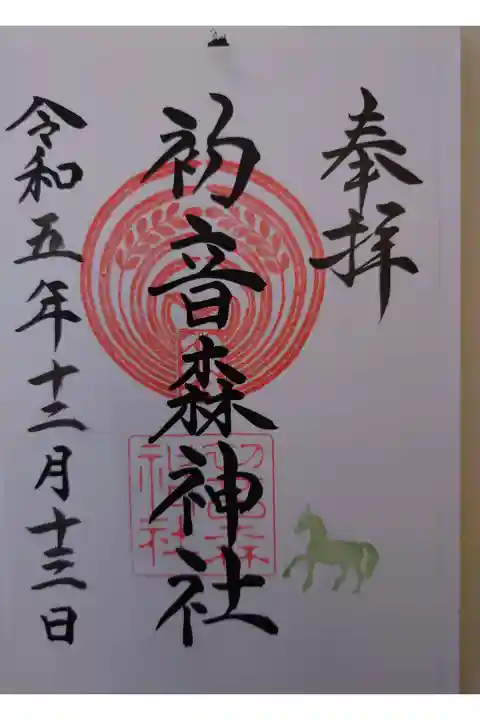 奉拝
初音森神社
令和五年十二月十三日
初音森
神社